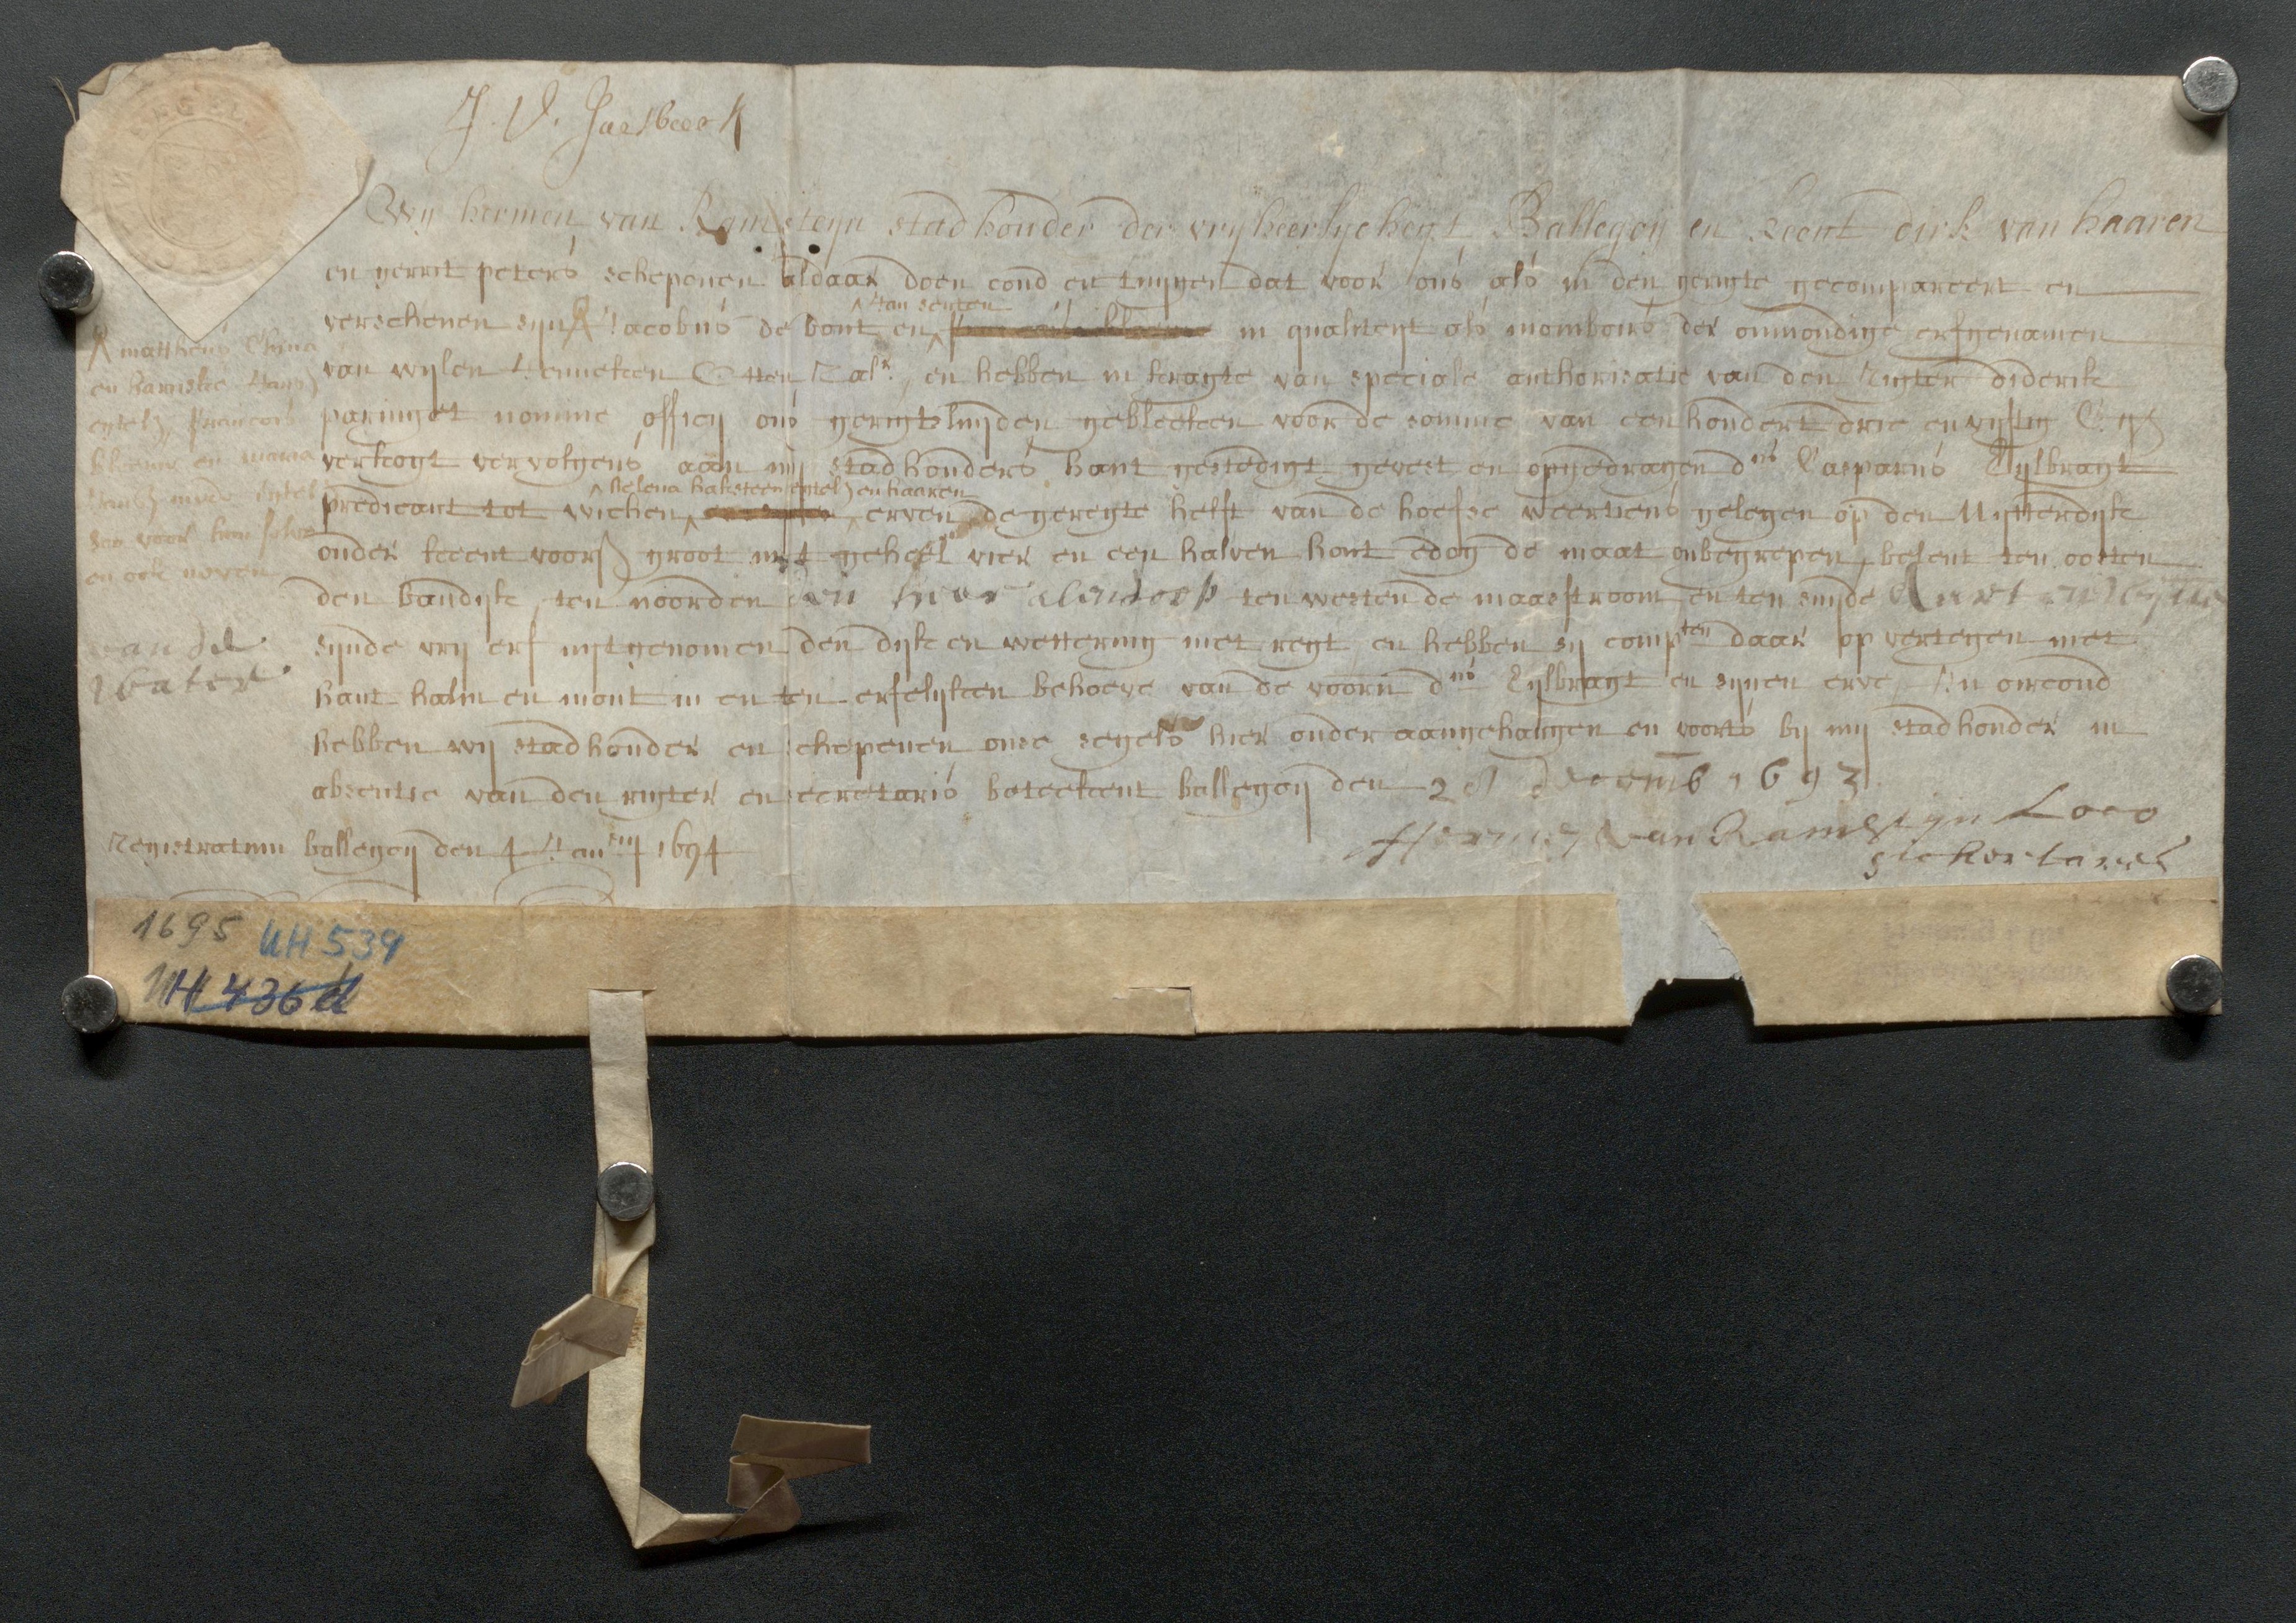 J. V.
Wij hermen van Ramsteijn stadhouder der vrijheerlijcheijt Ballegoij en Keent dirk van haaren
en gerrit peters schepenen aldaar doen cond en tuijgen dat voor ons als in den gerigte gecompareert en
Jan
verschenen sijn Jacobus de bont en in qualiteijt als momboirs der onmondige erfgenamen
van wijlen Otten Zalr. en hebben in kragte van speciale authorisatie van den rigter diderik
paringet nomine officij ons gerigtsluijden gebleeken voor de somme van een hondert drie en vijftig
verkogt vervolgens aan mij stadhouders hant gestedigt gevest en opgedragen dnus Casparus Tijlbragt
helena haksteen en haaren
predicant tot wichen erven de geregte helft van de hoefse weertiens gelegen op den Uijtterdijk
onder keent voors groot int geheel vier en een halven hont edog de maat onbegrepen, belent ten oosten
den bandijk, ten noorden den heer ten westen de maasstroom en ten suijde
sijnde vrij erf uijtgenomen den dijk en wettering met regt, en hebben sij compten daar op vertegen met
hant halm en mont in en ten erfelijken behoeve van de voorn dnus Tijlbragt en sijnen erve, In oircond
hebben wij stadhouder en schepenen onse segels hier onder aangehangen en voorts bij mij stadhouder in
absentie van den rigter en secretaris beteekent ballegoij den decemb 1693
Hermen van Ramstijn Loco
sickertares
Registratum ballegoij den 4 Januarij 1694
mattheus
en hanske
francois
en maria
mede
soo voor hun selve
en ook nevens
van de
water
1695 UH 539
UH 436d